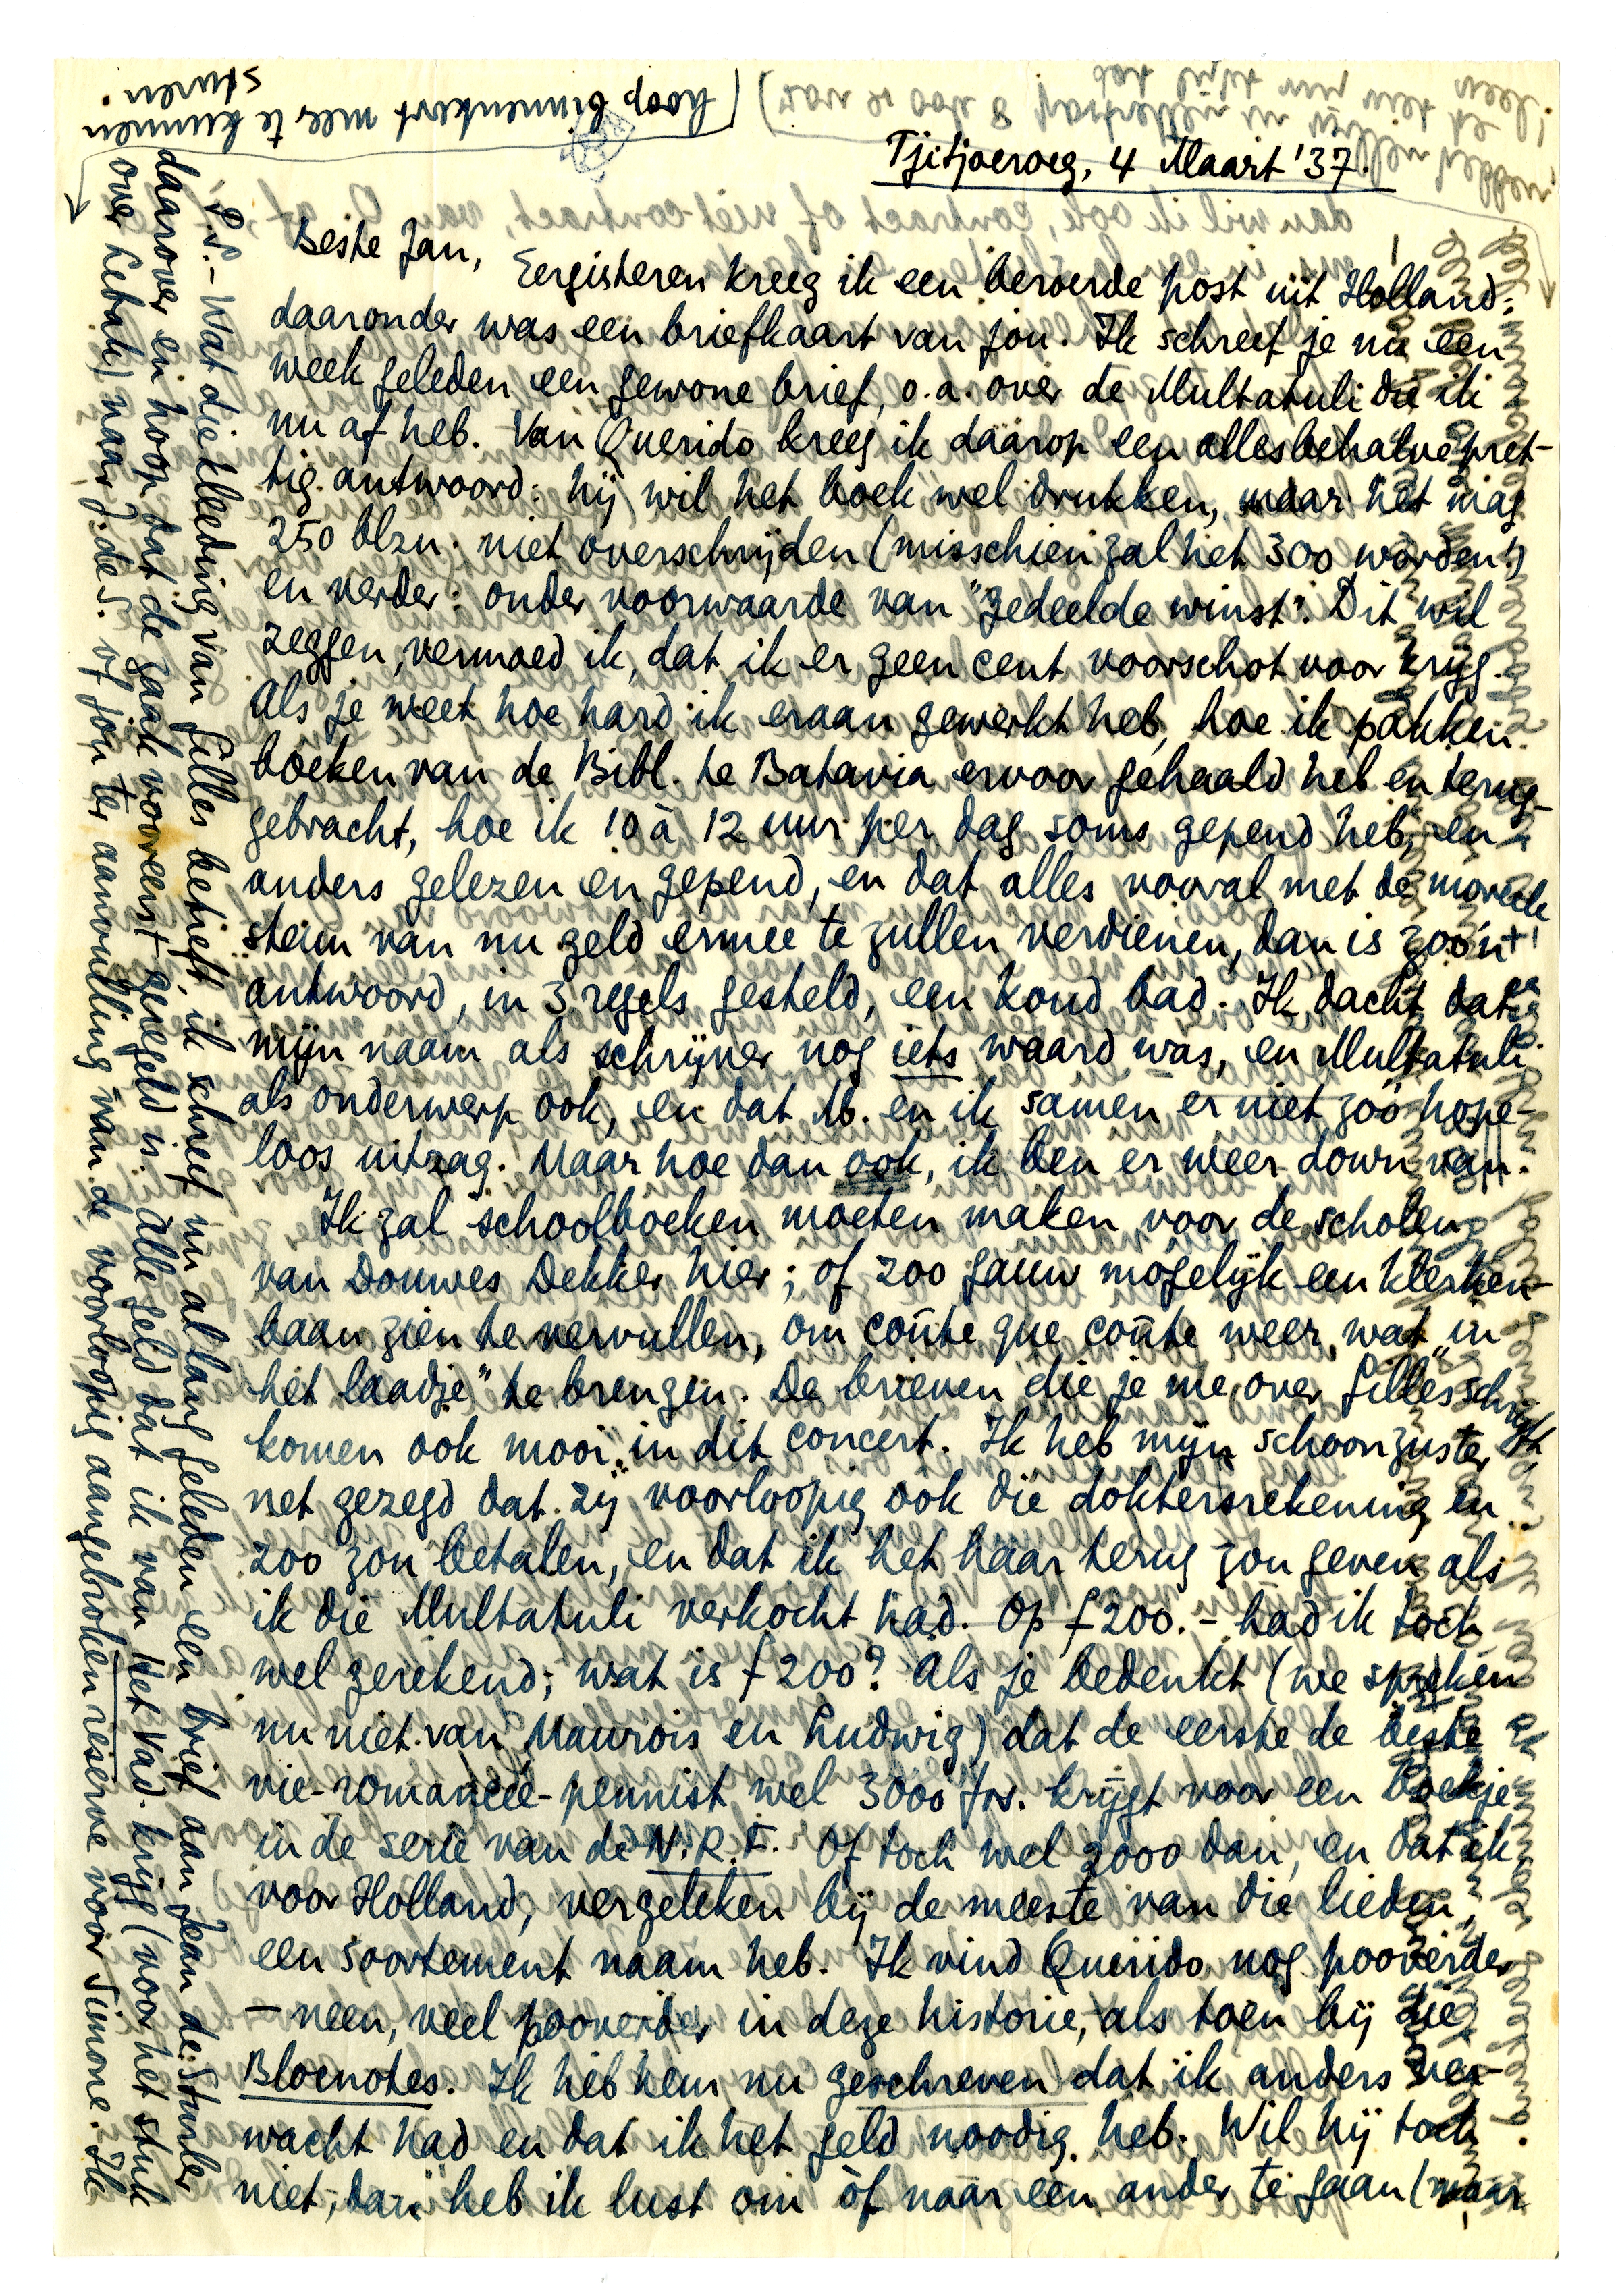 Tjitjoeroeg, 4 Maart '37.
Beste Jan,
Eergisteren kreeg ik een beroerde post uit Holland;
daaronder was een briefkaart van jou. Ik schreef je nu een
week geleden een gewone brief, o.a. over de Multatuli die ik
nu af heb. Van Querido kreeg ik daarop een allesbehalve pret-
tig antwoord: hij wil het boek wel drukken, maar het mag
250 blzn. niet overschrijden (misschien zal het 300 worden!)
en verder: onder voorwaarde van "gedeelde winst". Dit wil
zeggen, vermoed ik, dat ik er geen cent voorschot voor krijg.
Als je weet hoe hard ik eraan gewerkt heb, hoe ik pakken
boeken van de Bibl. te Batavia ervoor gehaald heb en terug-
gebracht, hoe ik 10 à 12 uur per dag soms gepend heb, en
anders gelezen en gepend, en dat alles vooral met de moreele
steun van nu geld ermee te zullen verdienen, dan is zoo'n
antwoord, in 3 regels gesteld, een koud bad. Ik dacht dat
mijn naam als schrijver nog iets waard was, en Multatuli
als onderwerp ook, en dat M. en ik samen er niet zoo hope-
loos uitzag. Maar hoe dan ook, ik ben er weer down van.
Ik zal schoolboeken moeten maken voor de scholen
van Douwes Dekker hier; of zoo gauw mogelijk een klerken-
baan zien te vervullen, om coûte que coûte weer wat „in
het laadje" te brengen. De brieven die je me over Gilles schrijft,
komen ook mooi in dit concert. Ik heb mijn schoonzuster
net gezegd dat zij voorloopig ook die doktersrekening en
zoo zou betalen, en dat ik het haar terug zou geven als
ik die Multatuli verkocht had. Op f 200.- had ik toch
wel gerekend; wat is f 200? Als je bedenkt (we spreken
nu niet van Maurois en Ludwig) dat de eerste de beste
vie-romancée-pennist wel 3000 frs. krijgt voor een boekje
in de serie van de N.R.F. Of toch wel 2000 dan, en dat ik
voor Holland, vergeleken bij de meeste van die lieden,
een soortement naam heb. Ik vind Querido nog pooverder
- neen, veel pooverder in deze historie, als toen bij die
Blocnotes. Ik heb hem nu geschreven dat ik anders ver-
wacht had en dat ik het geld noodig heb. Wil hij toch
niet, dan heb ik lust om òf naar een ander te gaan (maar
P.S. - Wat die kleeding van Gilles betreft, ik schreef nu al lang geleden een brief aan Jean de Sturler
daarover en hoop dat de zaak vooreerst geregeld is. Alle geld dat ik van Het Vad. krijg (voor het stuk
over Lebak) naar J. de S. of jou ter aanvulling van de voorloopig aangebroken reserve voor Simone. Ik
hoop binnenkort meer te kunnen
sturen.